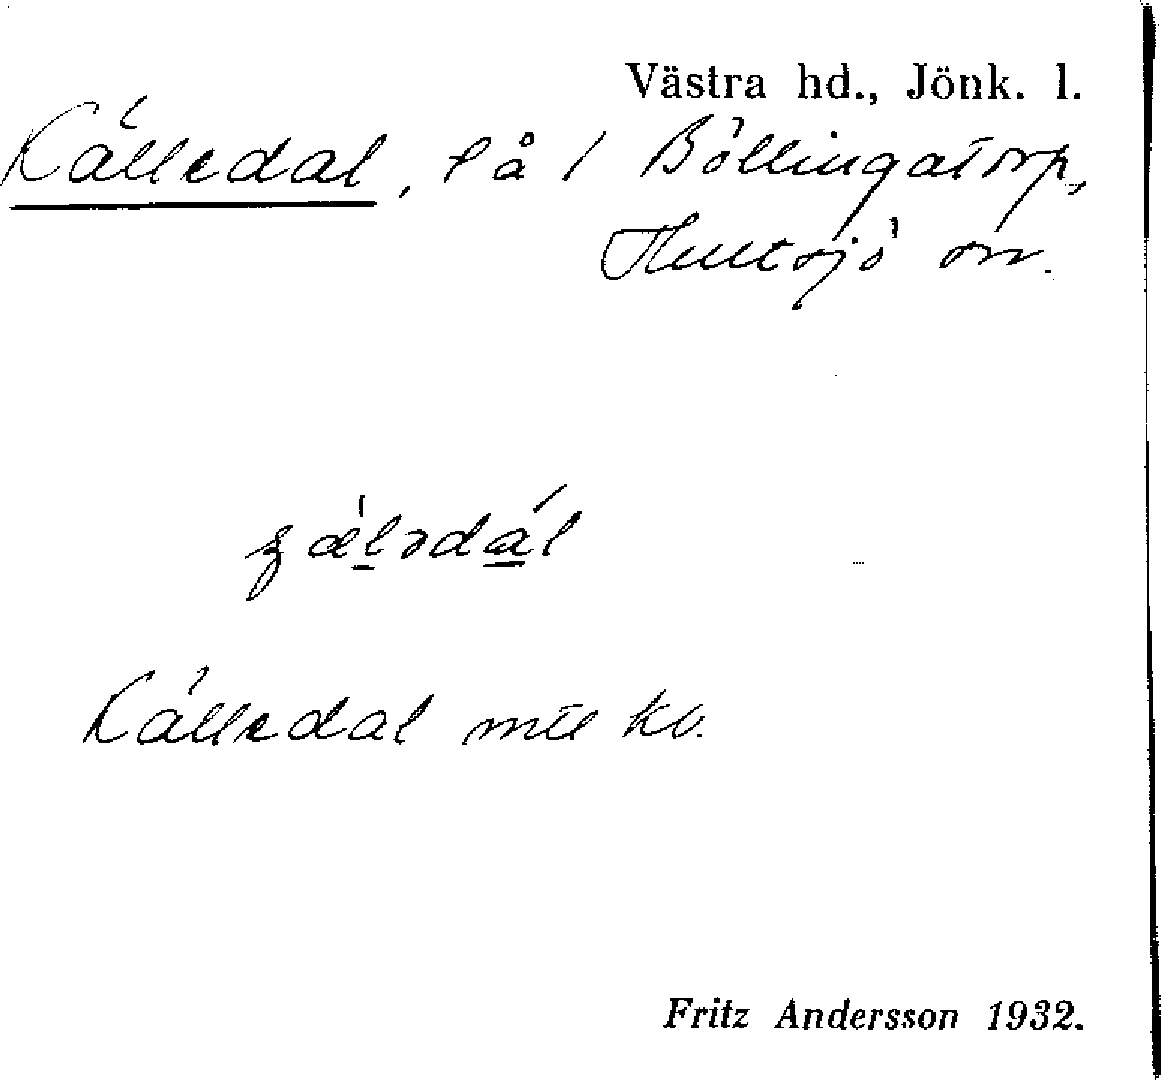 Västra hd., Jönk. l.
Källedal, lå / Böllingatorp,
Hultsjö sn.
Källedal mtl kv.
Fritz Andersson 1932.